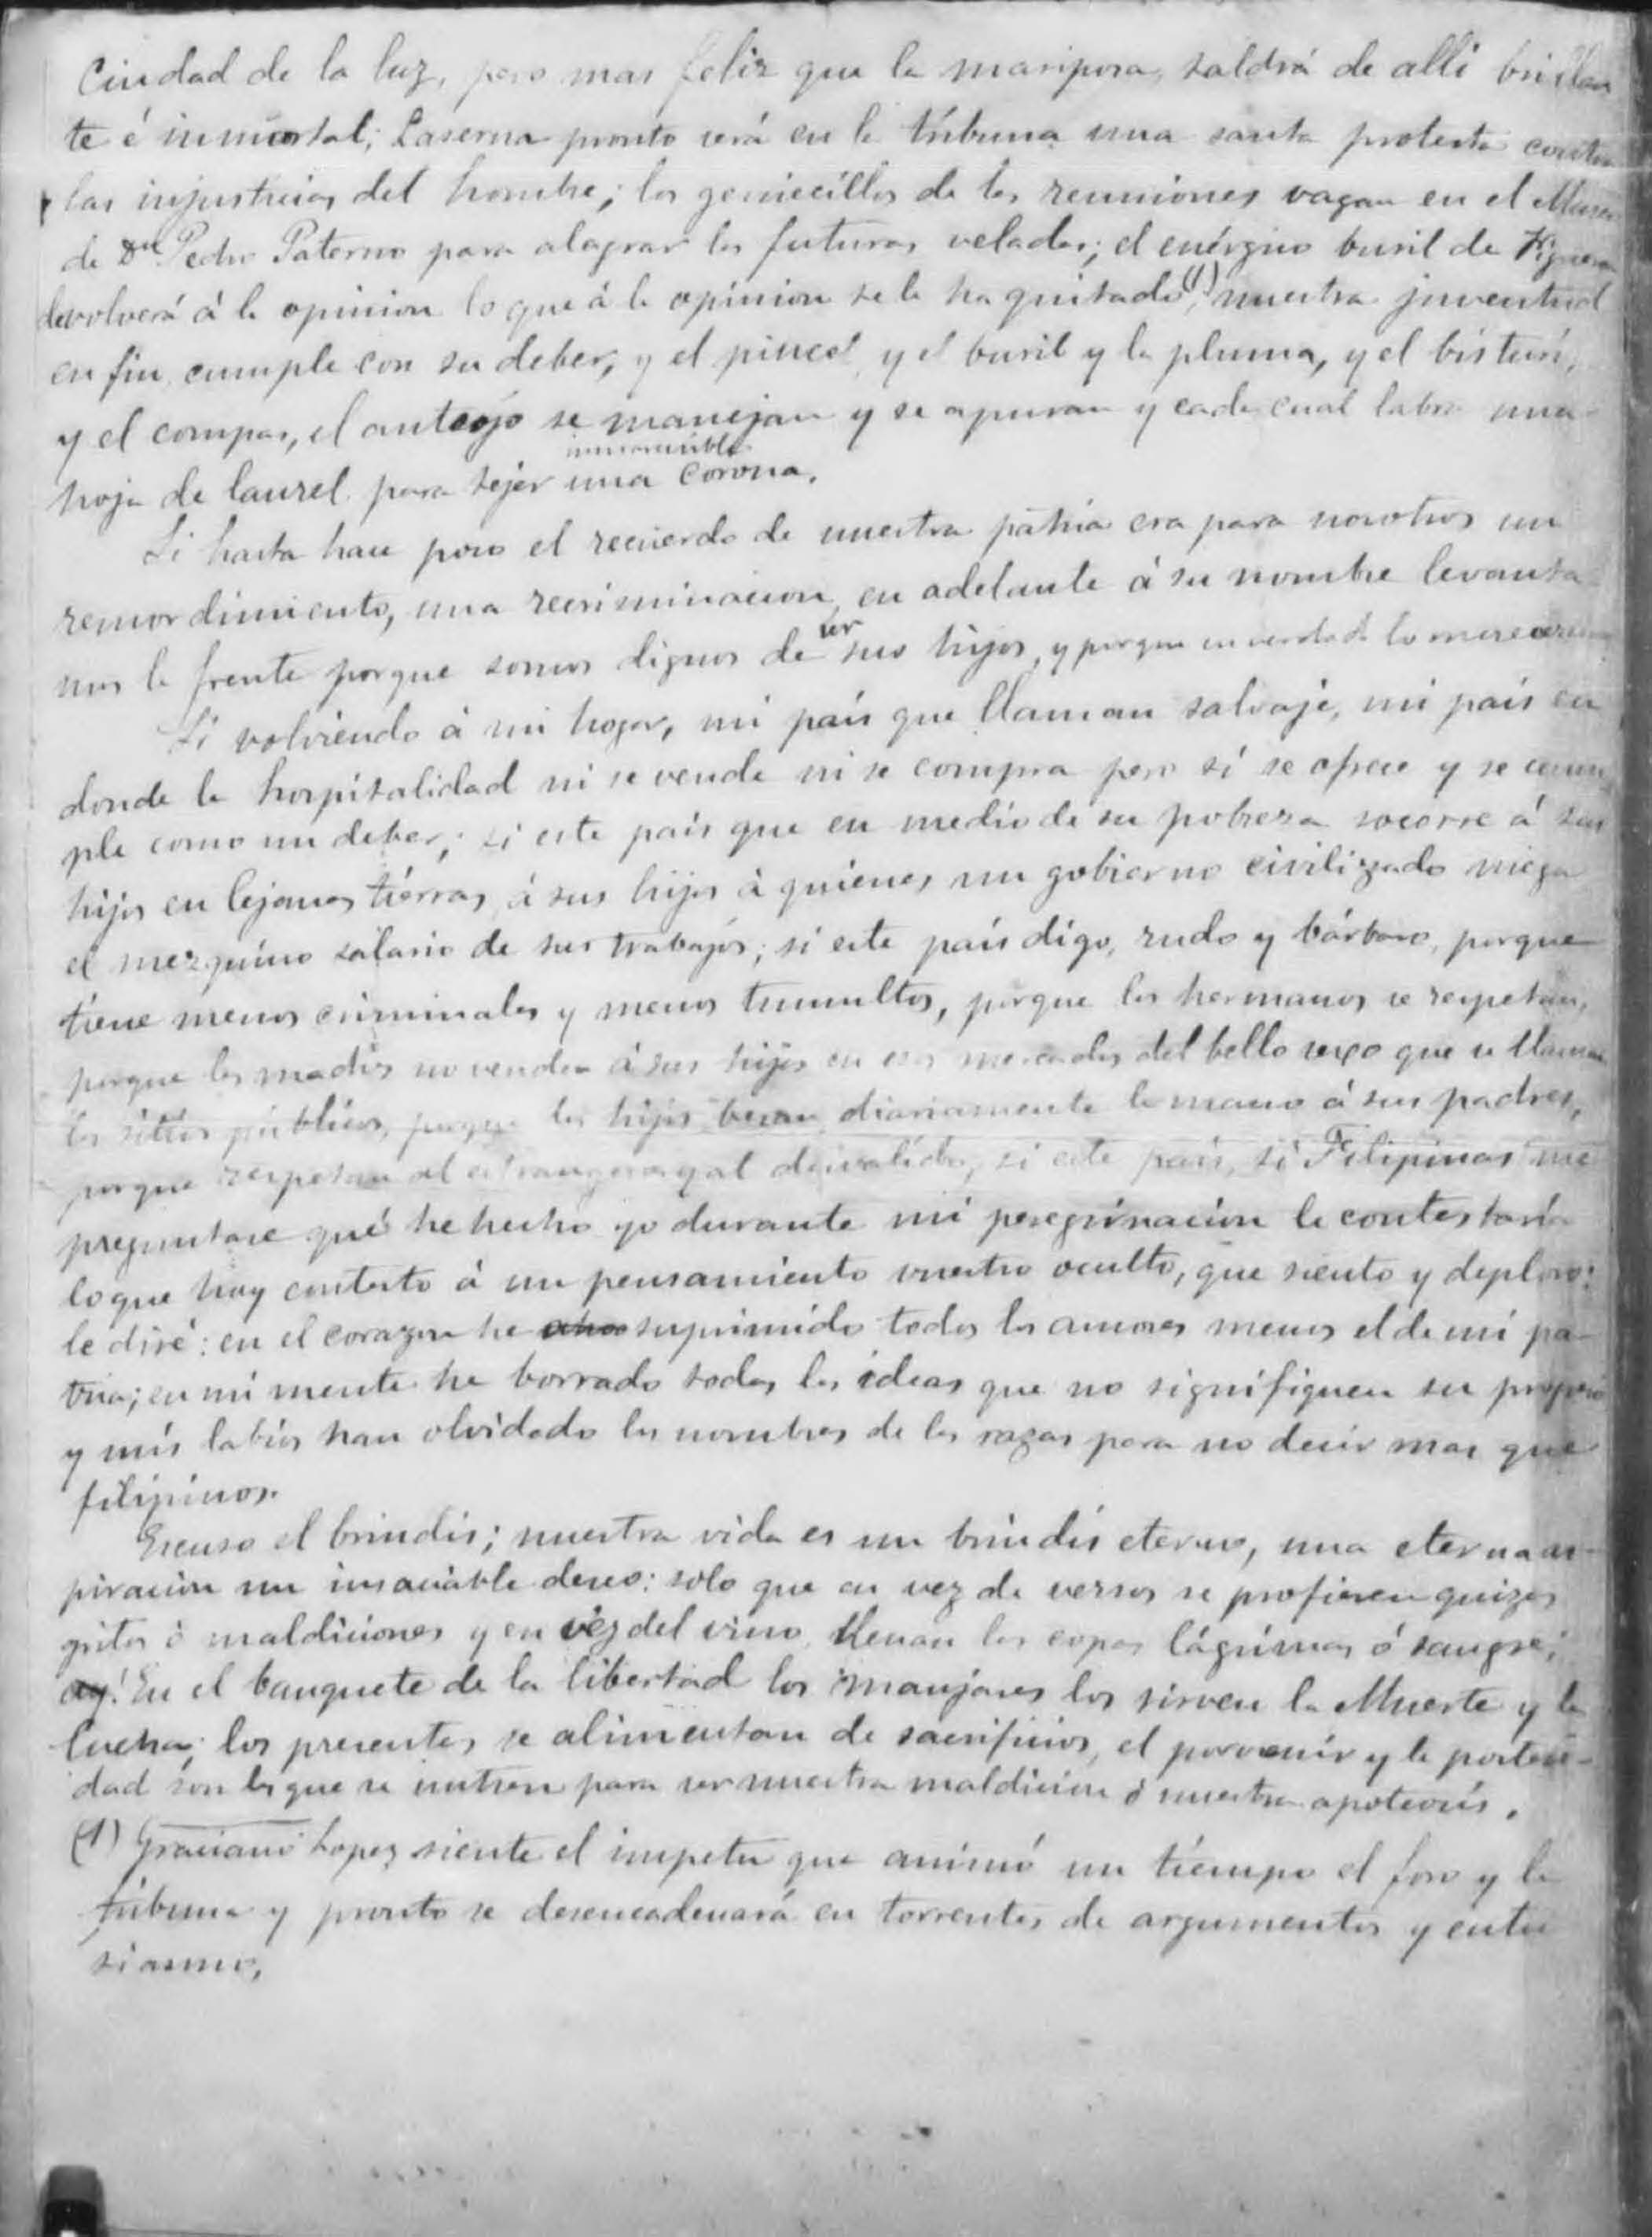 Ciudad de la luz, pero mas feliz que la mariposa, saldrá de alli brillan
te é inmortal; Laserna pronto será en la tribuna una santa protesta contra
las injusticias del hombre; los geniecillos de las reuniones vagan en el Museo
de Dn Pedro Paterno para alagrar las futuras veladas; el enérgico buril de Figueroa
devolverá á la opinion lo que á la opinion se le ha quitado(1); nuestra juventud
en fin cumple con su deber, y el pincel y el buril y la pluma, y el bisturí,
y el compas, el anteojo se manejan y se apuran y cada cual labra una
hoja de laurel para tejer una inmarcesible corona.
Si hasta hace poco el recuerdo de nuestra patria era para nosotros un
remordimiento, una recriminacion, en adelante á su nombre levanta
mos la frente porque somos dignos de ser sus hijos, y porque en verdad lo merecemos
Si volviendo á mi hogar, mi país que llaman salvaje, mi país en
donde la hospitalidad ni se vende ni se compra pero sí se ofrece y se cum
ple como un deber; si este país que en medio de su pobreza socorre á sus
hijos en lejanas tierras, á sus hijos á quienes un gobierno civilizado niega
el mezquino salario de sus trabajos; si este país digo, rudo y bárbaro, porque
tiene menos criminales y menos tumultos, porque los hermanos se respetan,
porque las madres no venden á sus hijas en esos mercados del bello sexo que se llaman
los sitios públicos, porque los hijos besan diariamente la mano á sus padres,
porque respetan al estrangero y al desvalido, si este país, si Filipinas me
preguntase qué he hecho yo durante mi peregrinacion le contestaría
lo que hoy contesto á un pensamiento vuestro oculto, que siento y deploro:
le diré: en el corazon he suprimido todos los amores menos el de mi pa-
tria; en mi mente he borrado todas las ideas que no signifiquen su progreso
y mis labios han olvidado los nombres de las razas para no decir mas que
filipinos.
Escuso el brindis; nuestra vida es un brindis eterno, una eterna as-
piracion un insaciable deseo: solo que en vez de versos se profieren quizas
gritos ó maldiciones y en vez del vino llenan las copas lágrimas ó sangre;
ay! En el banquete de la libertad los manjares los sirven la Muerte y la
lucha; los presentes se alimentan de sacrificios, el porvenir y la posteri-
dad son los que se nutren para ser nuestra maldicion ó nuestra apoteosis.
(1) Graciano Lopez siente el impetu que animó un tiempo el foro y la
tribuna y pronto se desencadenará en torrentes de argumentos y entu
siasmo,